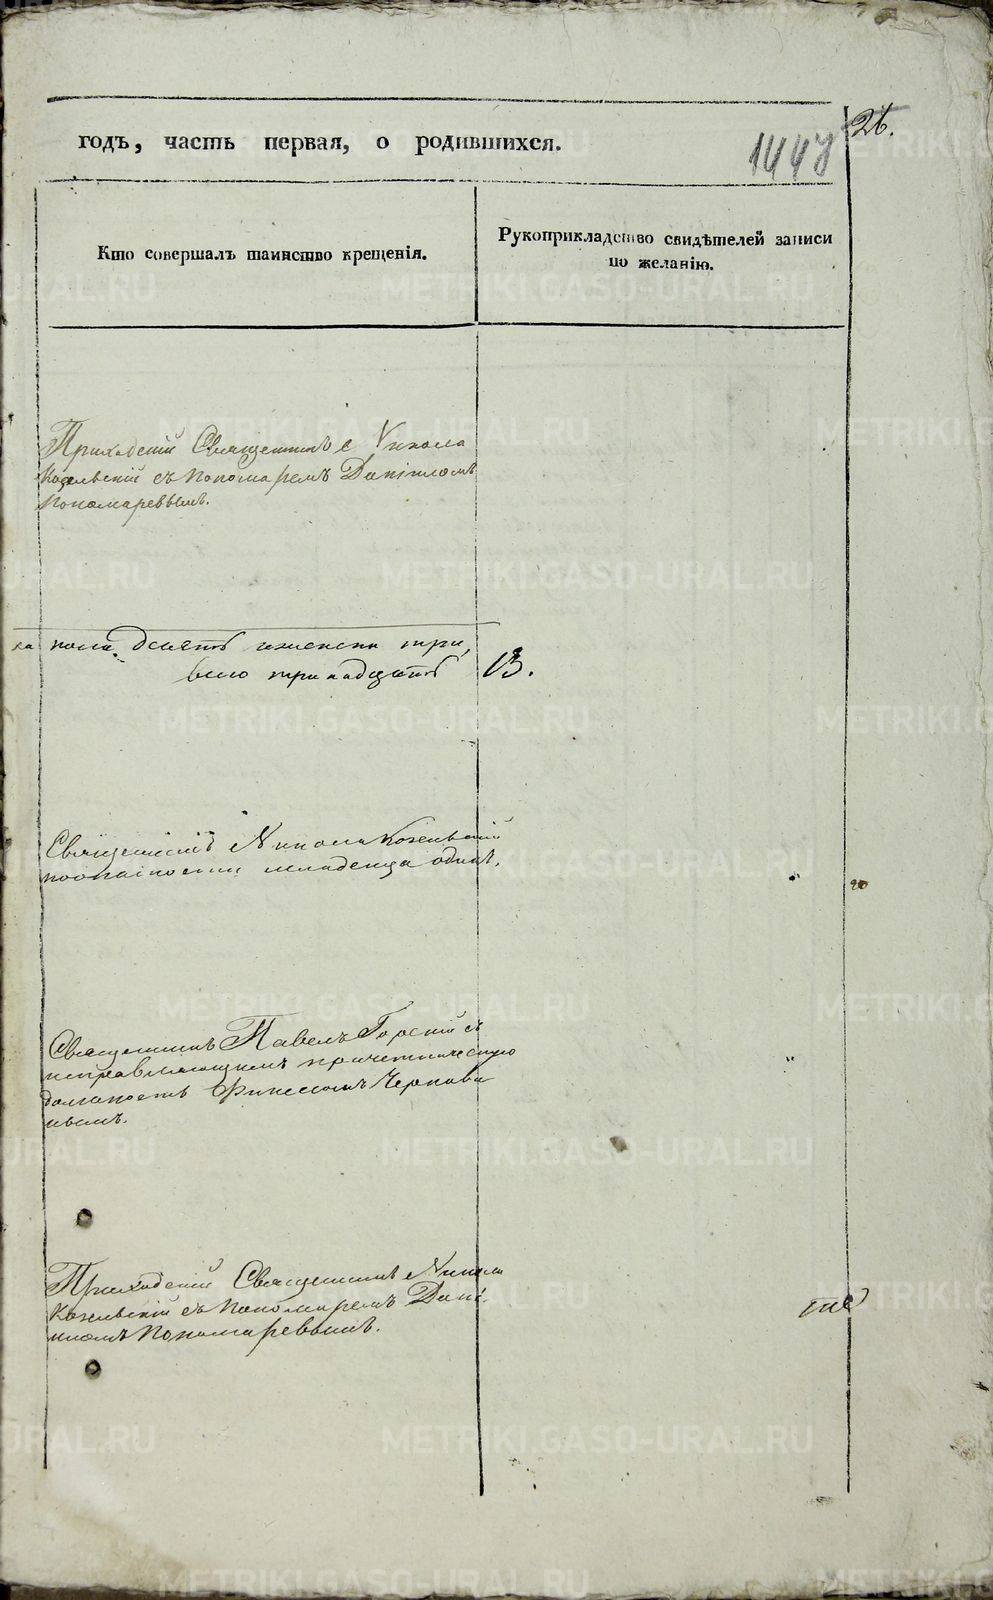 26.
годъ, часть первая, о родившихся.
1447
Кто совершалъ таинство крещенія.
Рукоприкладство свидѣтелей записи
по желанію.
Приходскій Священникъ Никола
Козельскій съ Пономаремъ Даніиломъ
Пономаревымъ.
пола десять женска три,
всего тринадцать 13.
Священникъ Никола Козельскій
по опасности младенца одинъ.
Священникъ Павелъ Горскій съ
исправляющимъ причетническую
должность
Приходскій Священникъ Никола
Козельскій съ Пономаремъ Дані
иломъ Пономаревымъ.
METRIKI.GASO-URAL.RU